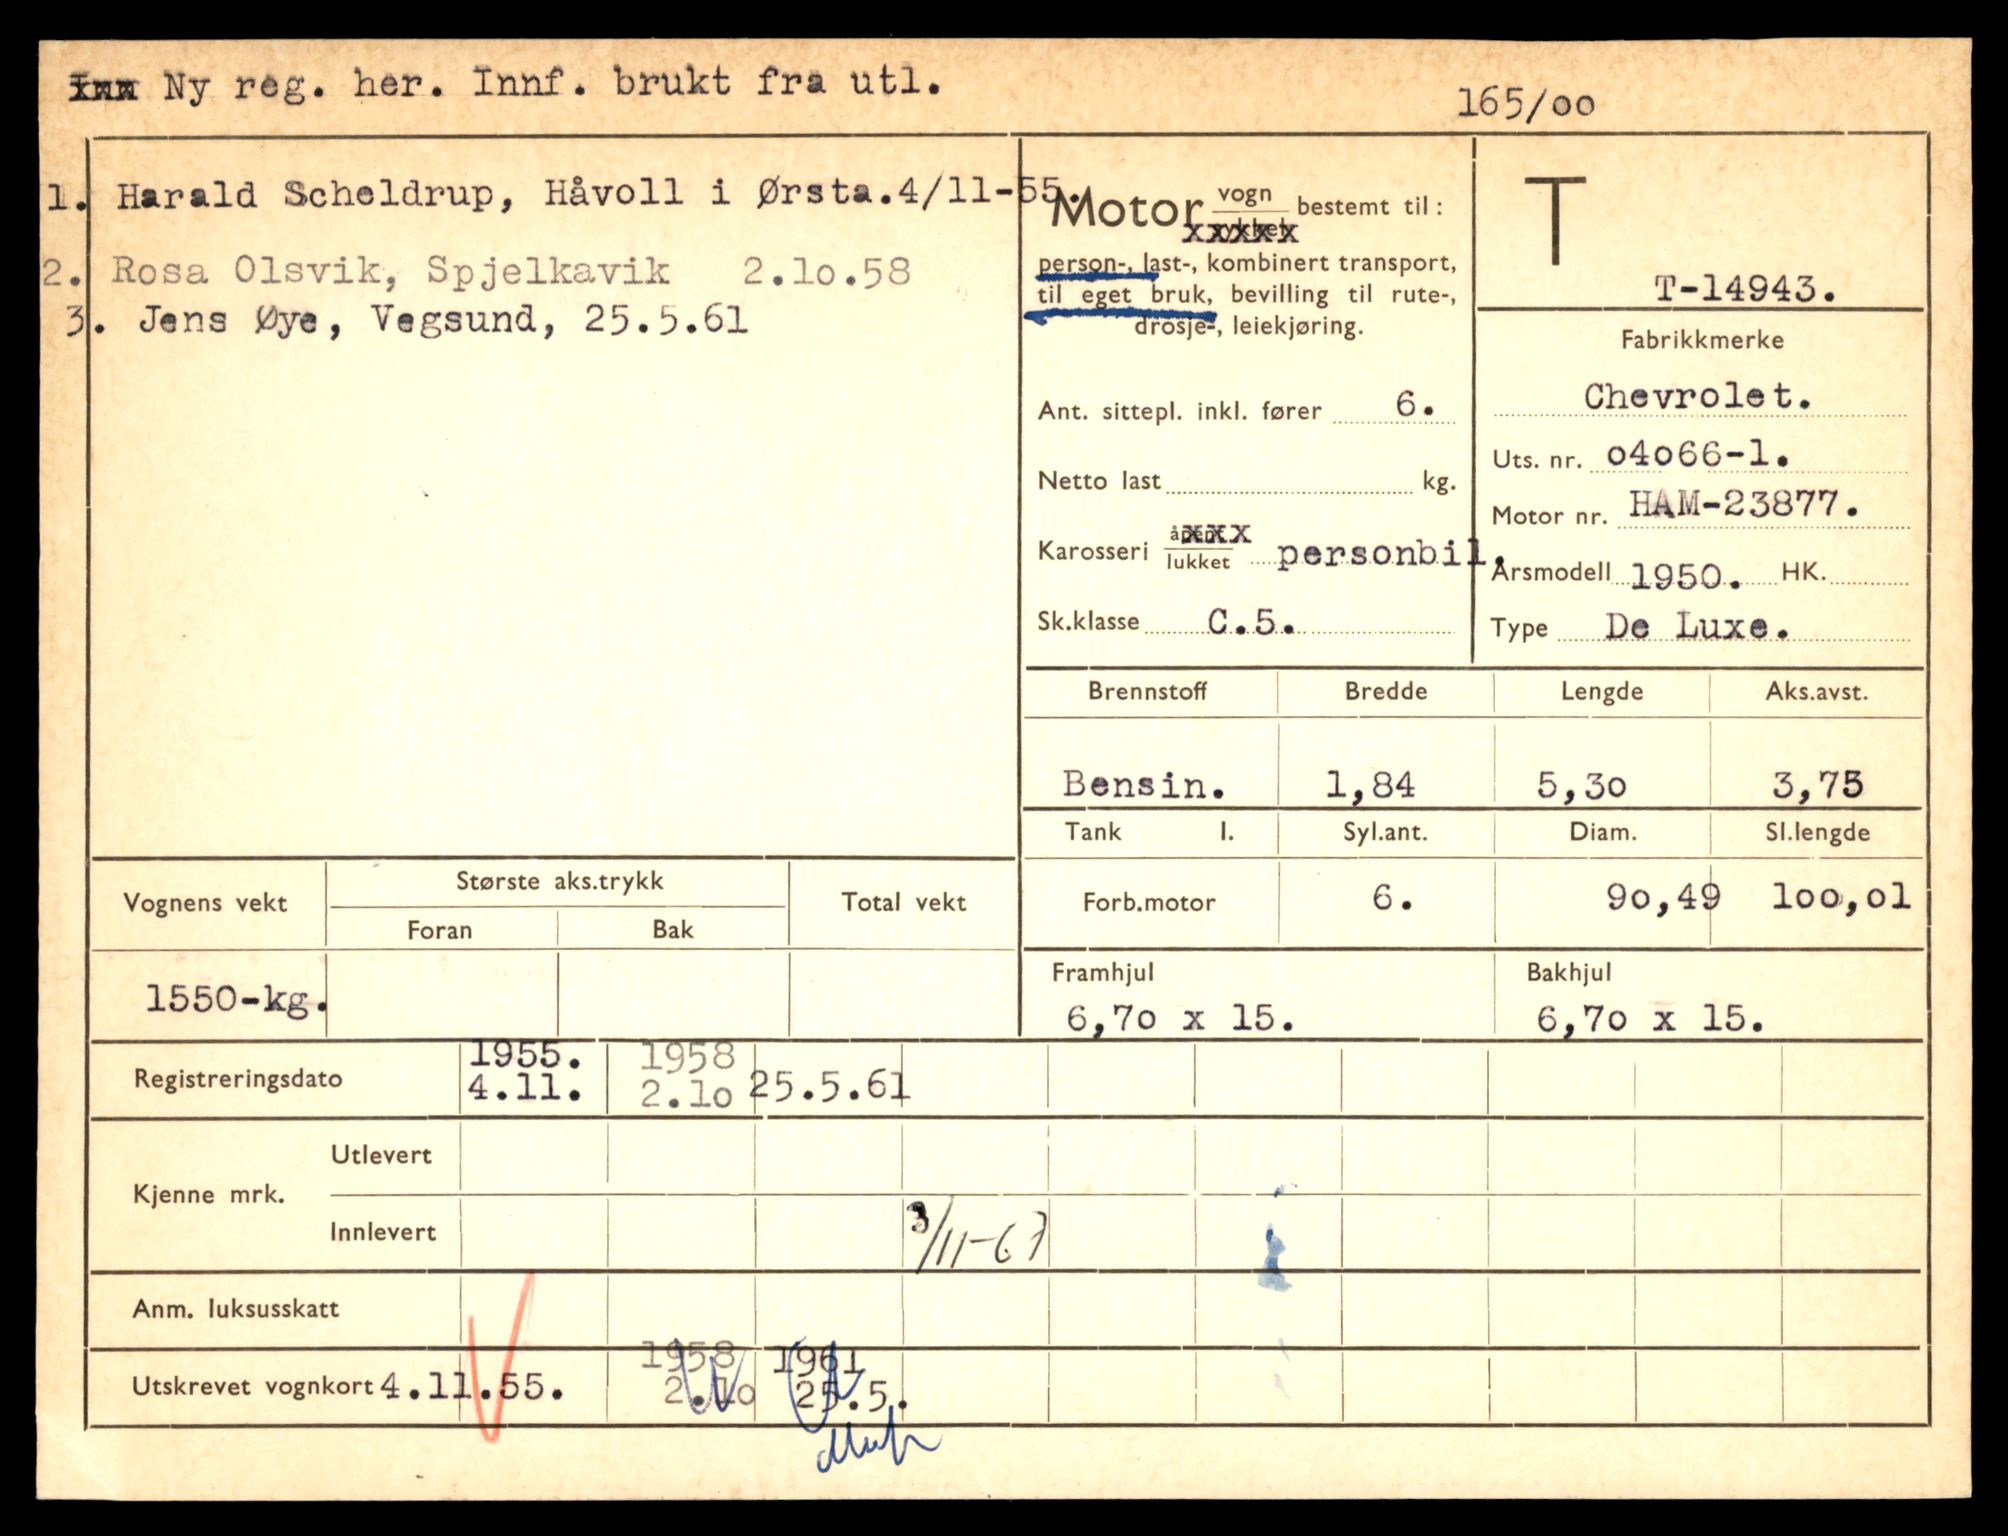 Ny reg. her. Innf. brukt fra utl.
165/oo
1. Harald Scheldrup, Håvoll i Ørsta.4/11-55.
2. Rosa Olsvik, Spjelkavik 2.1o.58
3. Jens Øye, Vegsund, 25.5.61
Motor vogn bestemt til:
person-, last-, kombinert transport,
til eget bruk, bevilling til rute-,
drosje-, leiekjøring.
Ant. sittepl. inkl. fører 6.
Netto last kg.
Karosseri åpent
lukket personbil.
Sk.klasse C.5.
T
T-14943.
Fabrikkmerke
Chevrolet.
Uts. nr. o4o66-1.
Motor nr. HAM-23877.
Årsmodell 1950. HK.
Type De Luxe.
Brennstoff Bredde Lengde Aks.avst.
Bensin. 1,84 5,3o 3,75
Tank l. Syl.ant. Diam. Sl.lengde
Forb.motor 6. 9o,49 1oo,o1
Framhjul Bakhjul
6,7o x 15. 6,7o x 15.
Vognens vekt Største aks.trykk Total vekt
Foran Bak
1550-kg.
Registreringsdato 1955. 4.11. 1958 2.1o 25.5.61
Kjenne mrk. Utlevert
Innlevert 3/11-67
Anm. luksusskatt
Utskrevet vognkort 4.11.55. 1958 2.1o 1961 25.5.